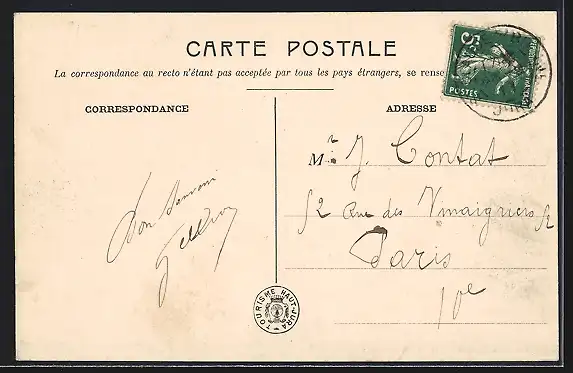 CARTE POSTALE
La correspondance au recto n'étant pas acceptée par tous les pays étrangers, se rense
5c
POSTES
CORRESPONDANCE
ADRESSE
Mr J. Contat
52 Rue des Vinaigriers 52
Paris
10e
Bon Souvenir
TOURISME HAUT-JURA